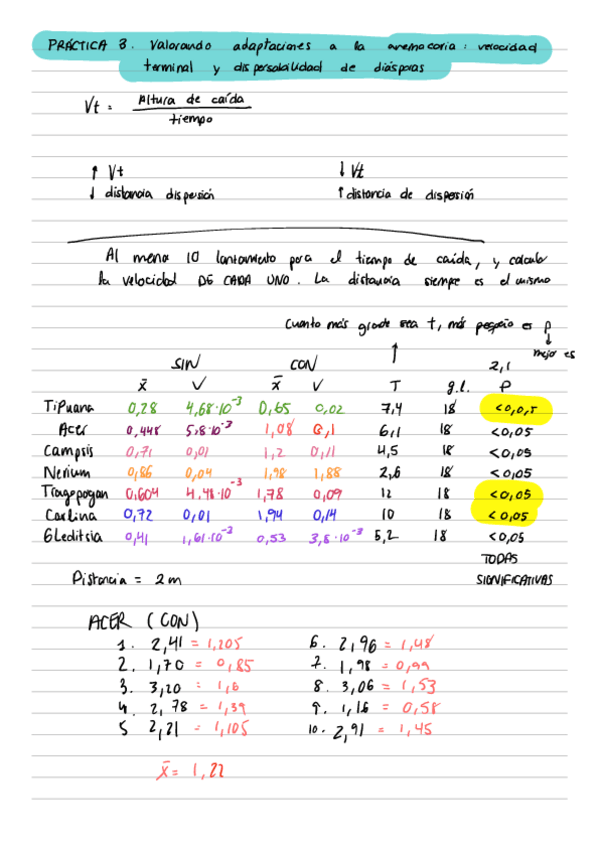 PRÁCTICA 3. Valorando adaptaciones a la anemocoria: velocidad
terminal y dispersabilidad de diásporas
Vt = Altura de caída
tiempo
↑ Vt ↓ Vt
↓ distancia dispersión ↑ distancia de dispersión
Al menos 10 lanzamiento para el tiempo de caída, y calculo
la velocidad DE CADA UNO. La distancia siempre es el mismo
Cuanto más grade sea t, más pequeño es p
↑ ↓
mejor es
SIN CON 2,1
x̄ V x̄ V T g.l. P
Tipuana 0,28 4,68·10⁻³ 0,65 0,02 7,4 18 <0,05
Acer 0,448 5,8·10⁻³ 1,08 0,1 6,1 18 <0,05
Campsis 0,71 0,01 1,2 0,11 4,5 18 <0,05
Nerium 0,86 0,04 1,98 1,88 2,6 18 <0,05
Tragopogon 0,604 4,48·10⁻³ 1,78 0,09 12 18 <0,05
Carlina 0,72 0,01 1,94 0,14 10 18 <0,05
Gleditsia 0,41 1,61·10⁻³ 0,53 3,8·10⁻³ 5,2 18 <0,05
TODAS
Distancia = 2m SIGNIFICATIVAS
ACER (CON)
1. 2,41 = 1,205 6. 2,96 = 1,48
2. 1,70 = 0,85 7. 1,98 = 0,99
3. 3,20 = 1,6 8. 3,06 = 1,53
4. 2,78 = 1,39 9. 1,16 = 0,58
5 2,21 = 1,105 10. 2,91 = 1,45
x̄ = 1,22